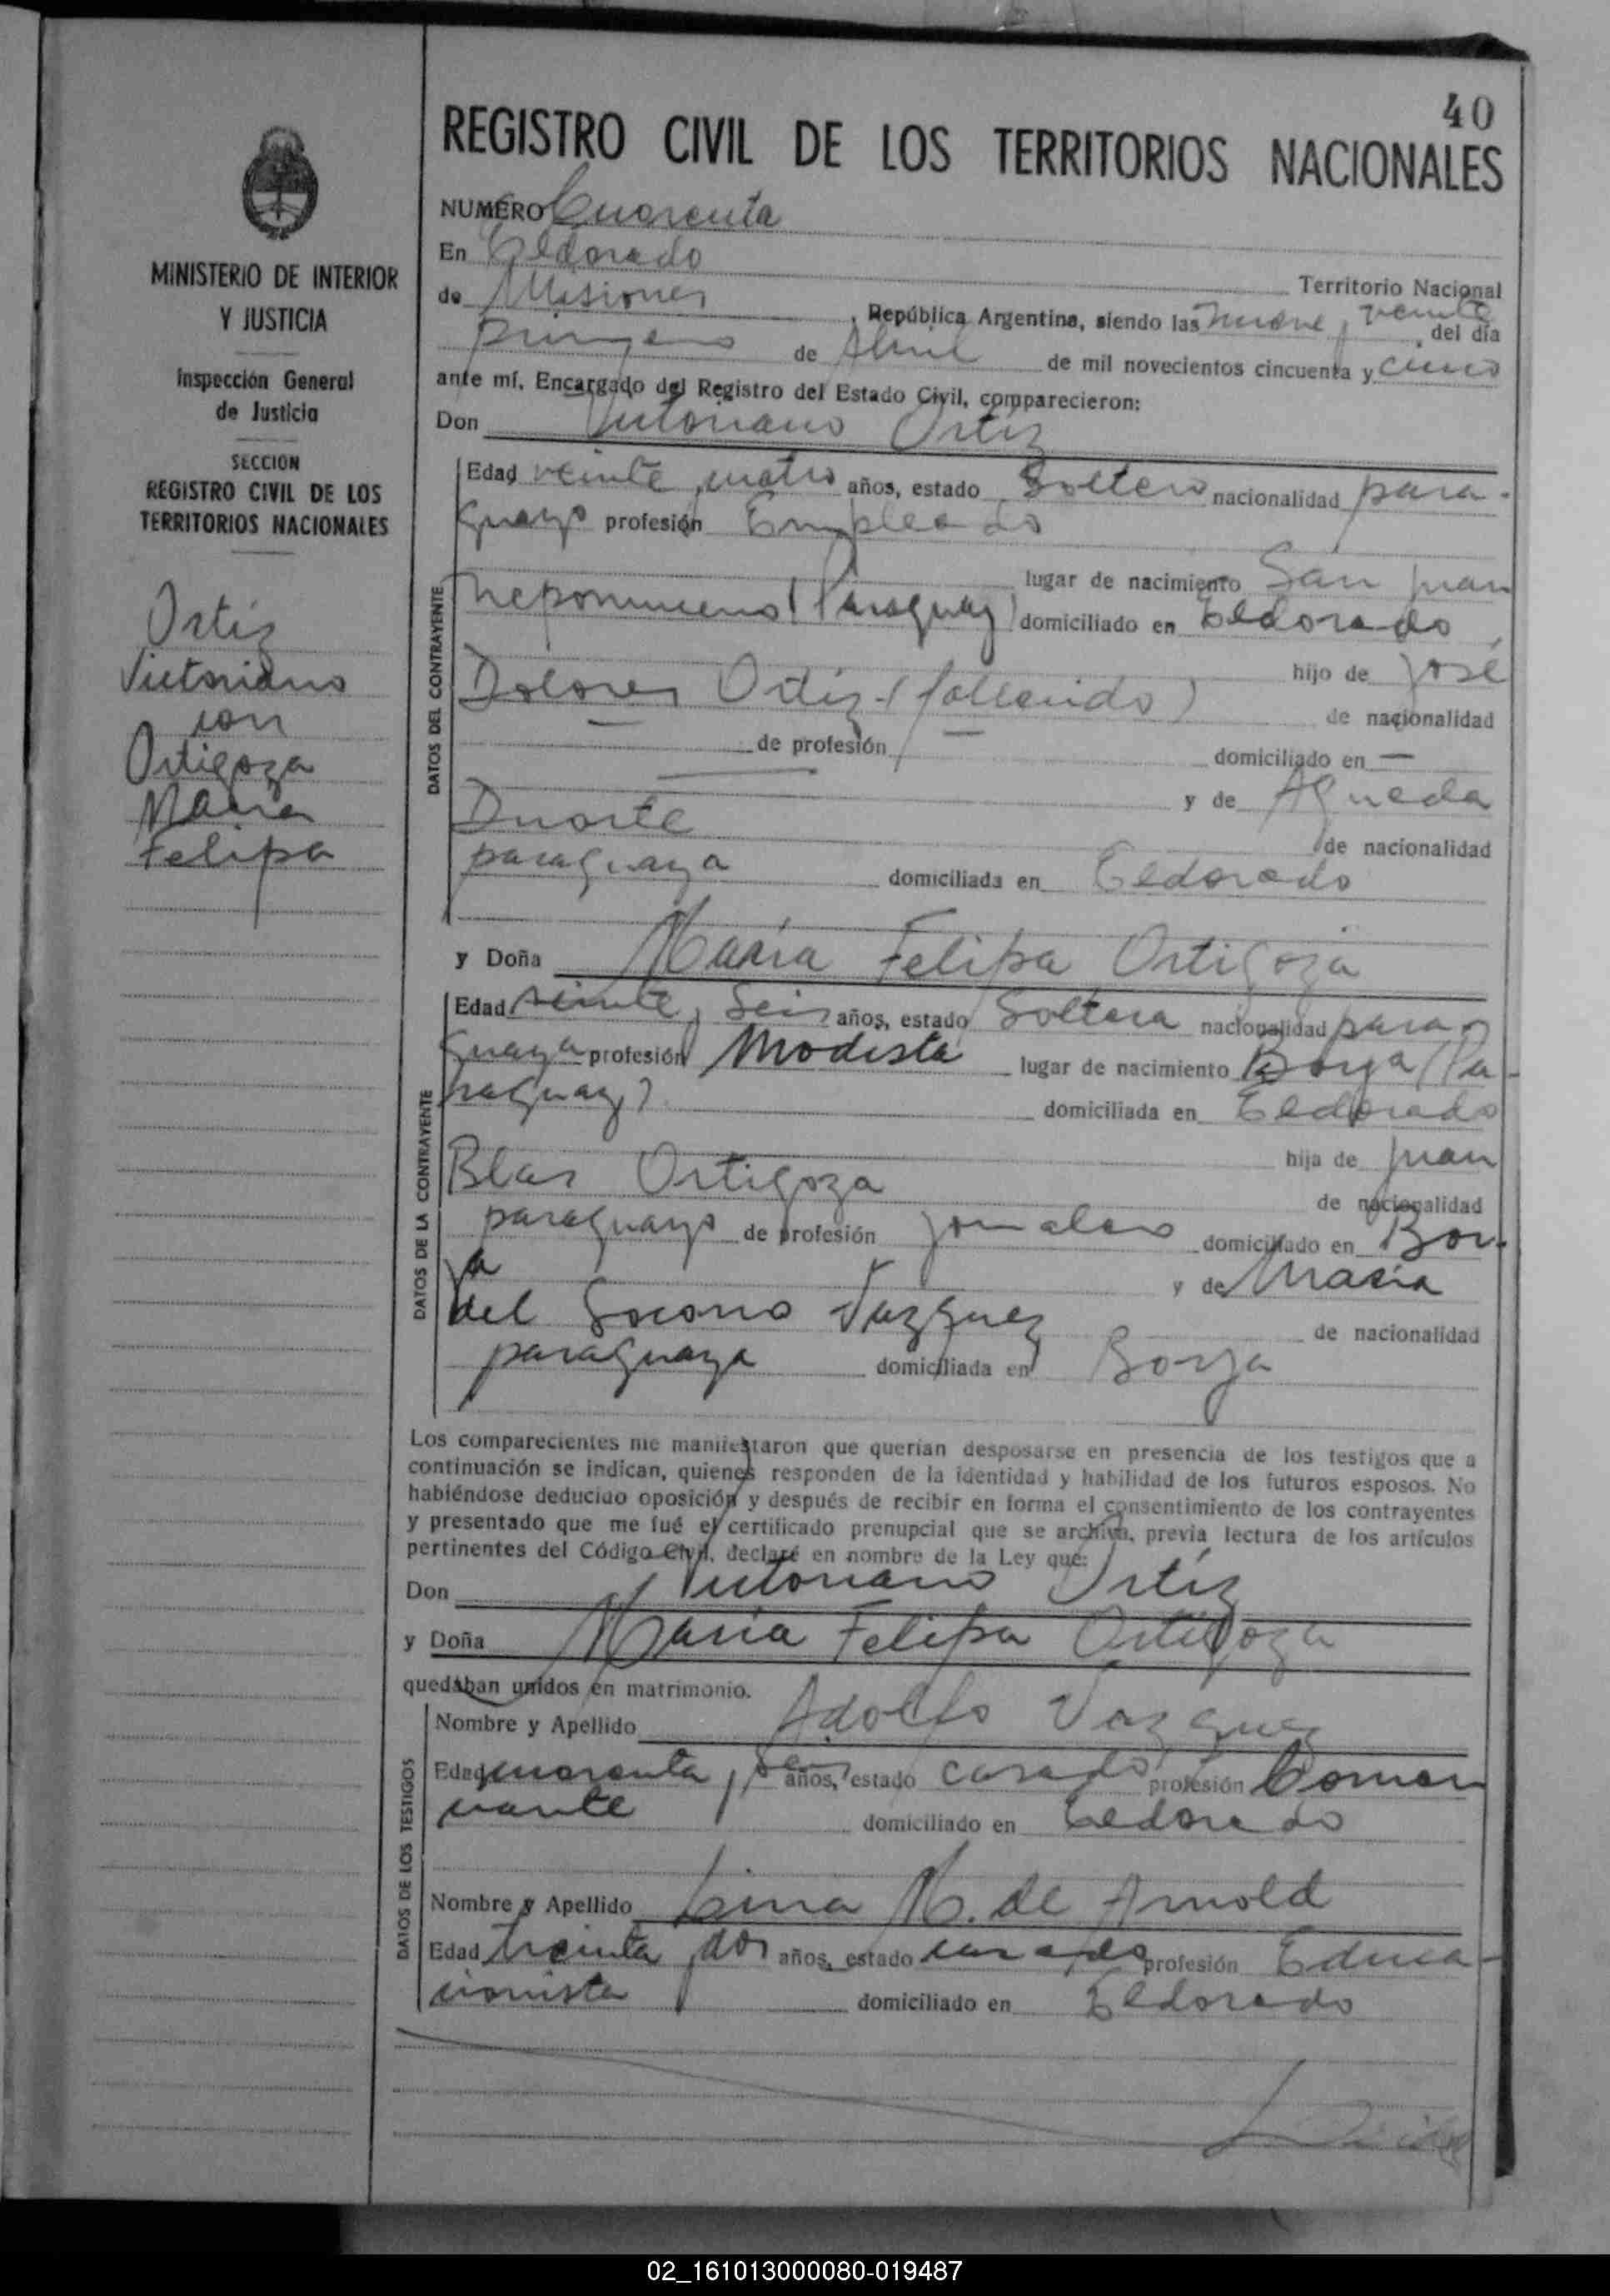 40
REGISTRO CIVIL DE LOS TERRITORIOS NACIONALES
MINISTERIO DE INTERIOR
Y JUSTICIA
Inspección General
de Justicia
SECCION
REGISTRO CIVIL DE LOS
TERRITORIOS NACIONALES
Ortíz
Victoriano
con
Ortigoza
María
Felipa
NUMERO Cuarenta
En Eldorado
Territorio Nacional
de Misiones, República Argentina, siendo las nueve y veinte del día
primero de Abril de mil novecientos cincuenta y cinco
ante mí, Encargado del Registro del Estado Civil, comparecieron:
Don Victoriano Ortíz
DATOS DEL CONTRAYENTE
Edad veinte y cuatro años, estado Soltero nacionalidad para-
guayo profesión Empleado
lugar de nacimiento San Juan
Nepomuceno (Paraguay) domiciliado en Eldorado,
hijo de José
Dolores Ortíz - (fallecido)
de nacionalidad
— de profesión — domiciliado en —
y de Agueda
Duarte
de nacionalidad
paraguaya domiciliada en Eldorado
y Doña María Felipa Ortigoza
DATOS DE LA CONTRAYENTE
Edad veinte y Seis años, estado Soltera nacionalidad para-
guaya profesión Modista lugar de nacimiento Borja (Pa-
raguay) domiciliada en Eldorado
hija de Juan
Blas Ortigoza
de nacionalidad
paraguayo de profesión jornalero domiciliado en Bor-
ja y de María
del Socorro Vazquez
de nacionalidad
paraguaya domiciliada en Borja
Los comparecientes me manifestaron que querían desposarse en presencia de los testigos que a
continuación se indican, quienes responden de la identidad y habilidad de los futuros esposos. No
habiéndose deducido oposición y después de recibir en forma el consentimiento de los contrayentes
y presentado que me fué el certificado prenupcial que se archiva, previa lectura de los artículos
pertinentes del Código Civil, declaré en nombre de la Ley que:
Don Victoriano Ortíz
y Doña María Felipa Ortigoza
quedaban unidos en matrimonio.
DATOS DE LOS TESTIGOS
Nombre y Apellido Adolfo Vazquez
Edad cuarenta y seis años, estado casado profesión Comer
ciante domiciliado en Eldorado
Nombre y Apellido Lina M. de Arnold
Edad treinta y dos años, estado casada profesión Educa-
cionista domiciliado en Eldorado
02_161013000080-019487